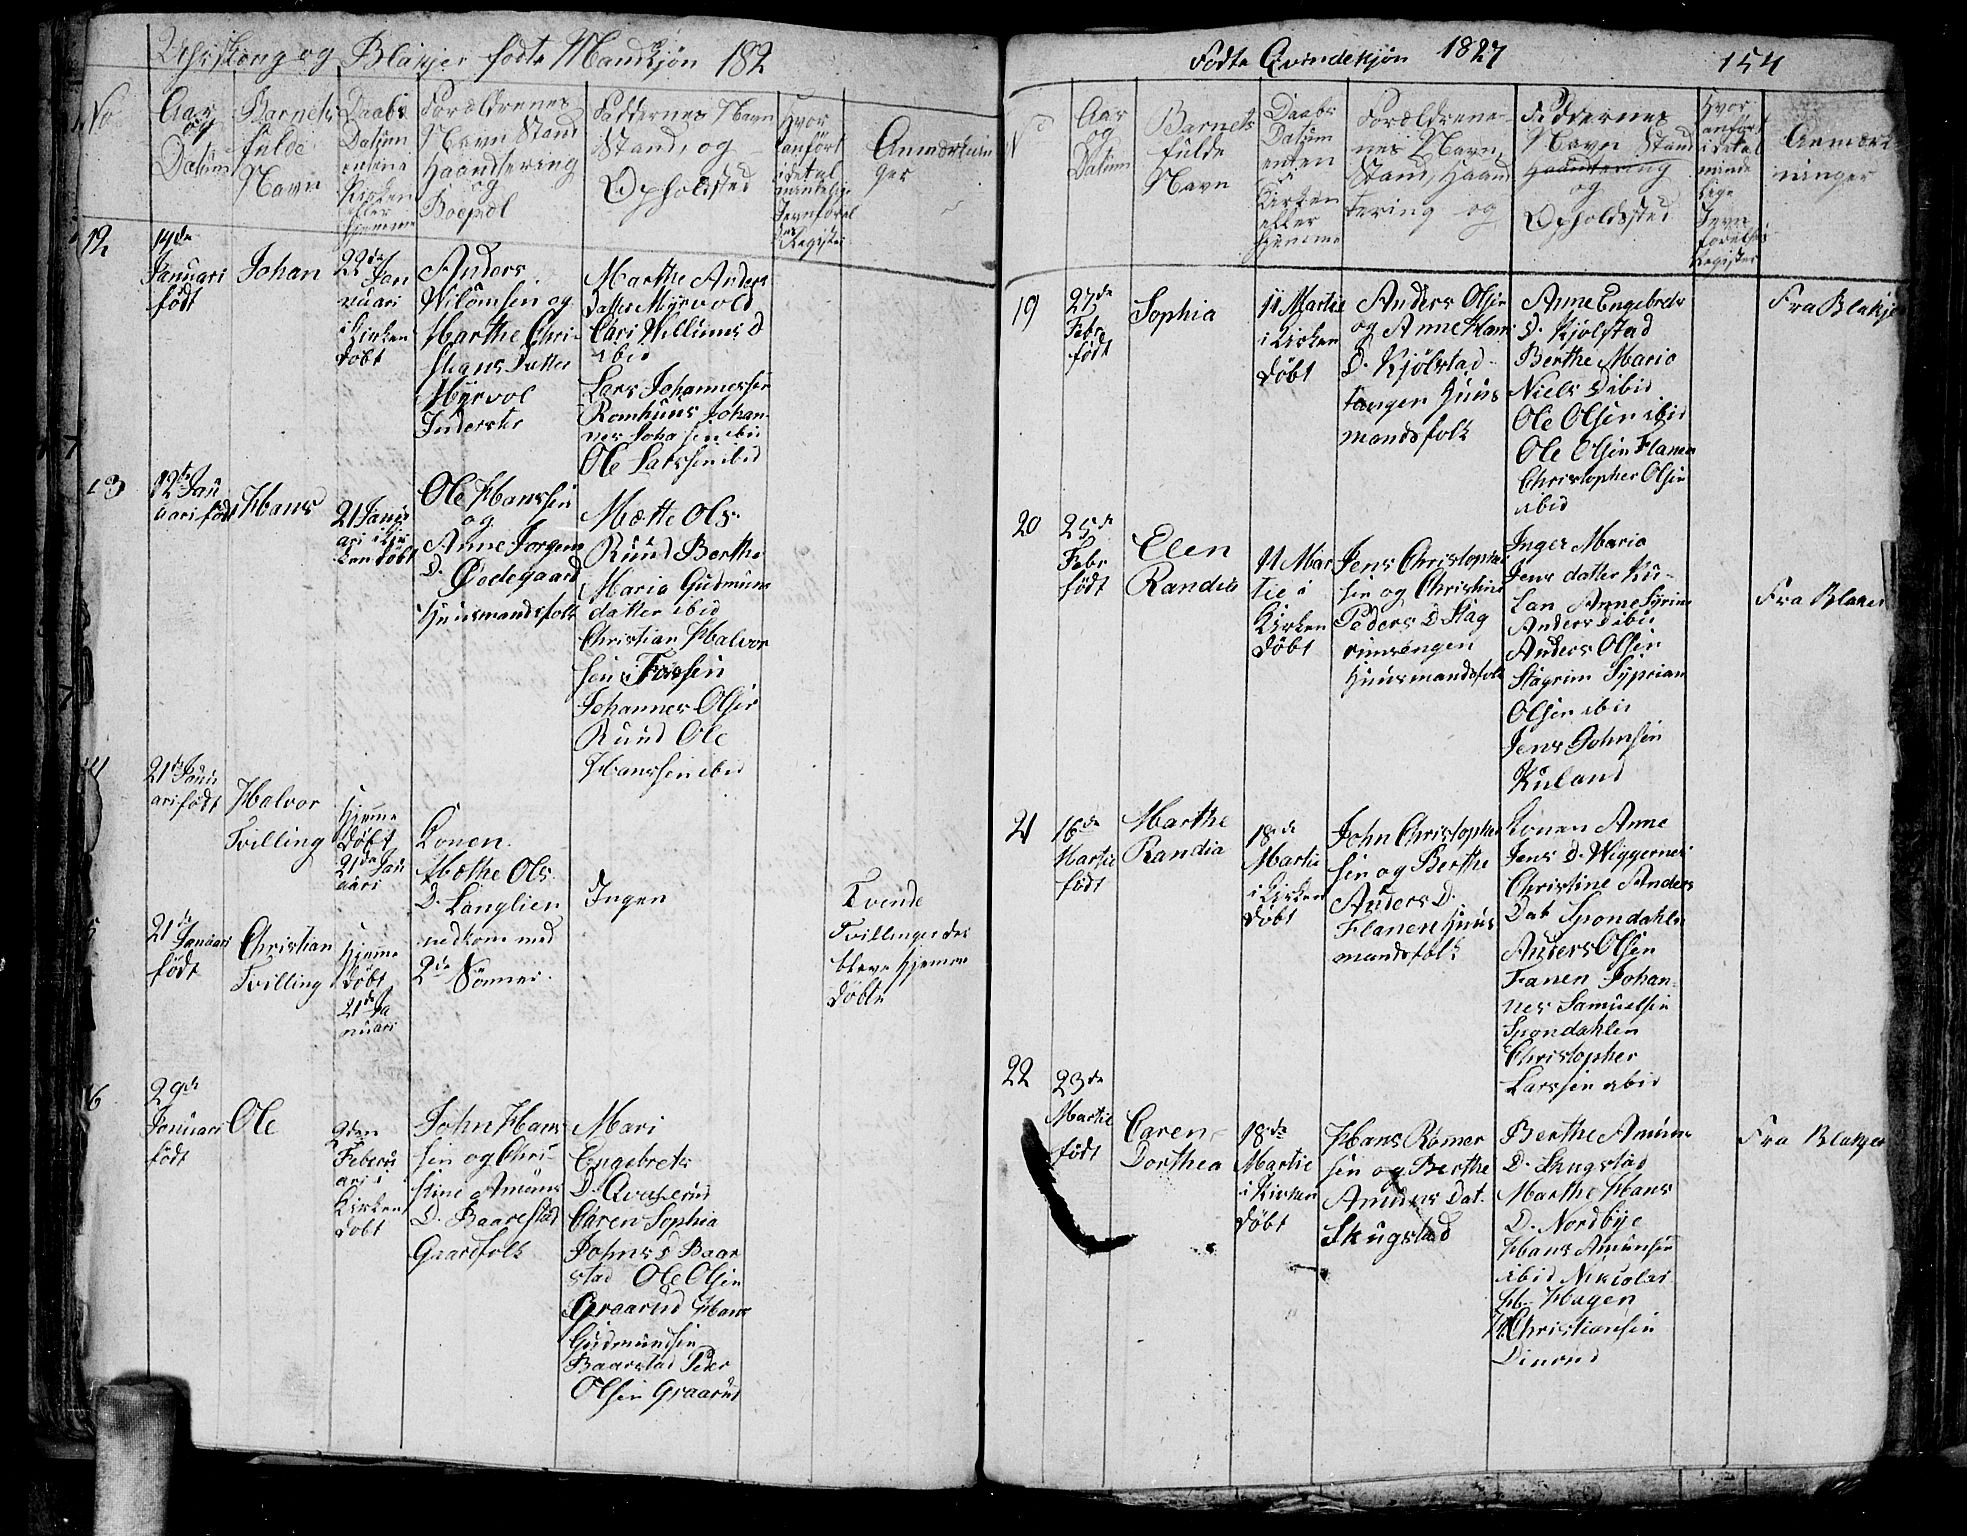 og Blakjer fødte Mandkjøn 182
No
Aar
og
Datum
Barnets
fulde
Navn
Daabs
Datum
enten i
Kirken
eller
hjemme
Forældrenes
Navn Stand
Haandtering
og
Boepæl
Faddernes Navn
Stand, og
Opholdsted
Hvor
anført
i det al
mindelige
Jevnførel
ses
Register
Anmærknin
ger
12
14de
Januari
født
Johan
22de
Jan
nuari
i Kirken
døbt
Anders
Wilomsen og
Marthe Chri-
stians Datter
Myrvol
Inderster
Marthe Anders
Datter Myrvold
Cari Willums D
ibid
Lars Johannessen
Romhuus Johan-
nes Joha sen ibid
Ole Larssen ibid
13
12te Jan
uari født
Hans
21 Janu
ari i Kir
ken døbt
Ole Hanssen
og
Anne Jorgens
D. Ødegaard
Huusmandsfolk
Mætte Ols
Ruud Berthe
Maria Gudmuns
datter ibid
Christian Halvor
sen Fossen
Johannes Olsen
Ruud Ole
Hanssen ibid
21de Janu
ari født
Halvor
Tvilling
Hjemme
Døbt
21de Jan
uari
Konen
Mæthe Ols
D. Langlien
nedkom med
2de Sønner.
Ingen
Tvende
Tvillinger der
bleve Hjemme
døbte
21de
Januari
født
Christian
Tvilling
Hjemme
døbt
21de Ja
nuari
6
29de
Januari
født
Ole
9den
Februari i
Kirken
døbt
John Hans
sen og Chri-
stine Amuns
D. Baarestad
Gaardfolk
Mari
Engebrets
D.
Caren Sophia
Johns D Baar
stad Ole Olsen
Graarud Hans
Gudmundsen
Baarstad Peder
Olsen Graarud
Fødte Qvindekjøn 1827
154
No
Aar
og
Datum
Barnets
fulde
Navn
Daabs
Datum
enten
i
Kirken
eller
hjemme
Forældrene-
nes Navn,
Stand, Haand
tering og
Faddernes
Navn Stand
Haandtering
og
Opholdssted
Hvor
anført
i det al
minde
lige
Jevn
førelses
Register
Anmærk-
ninger
19
27de
Febr
født
Sophia
11 Martie
i Kirken
døbt
Anders Olsen
og Anne Hans
D. Kjölstad-
tangen Huus
mandsfolk
Anne Engebrets
D. Kjolstad
Berthe Maria
Niels D ibid
Ole Olsen ibid
Ole Olsen Flanen
Christopher Olsen
ibid
Fra Blakjer
20
25de
Febr
født
Elen
Randia
11 Mar
tie i
Kirken
døbt
Jens Christophe
sen og Christine
Peders D Stag
rimsengen
Huusmandsfolk
Inger Maria
Jens datter Ku-
lan Anne Syrine
Anders D ibid
Anders Olsen
Stagrim Syprian
Olsen ibid
Jens Johnsen
Kuland
Fra Blaker
21
16de
Martie
født
Marthe
Randia
18de
Martie
i Kirken
døbt
John Christopher
sen og Berthe
Anders D.
Flanen Huus
mandsfolk
Konen Anne
Jens D. Wiggernes
Christine Anders
Dat Spondahlen
Anders Olsen
Fanen Johan
nes Samuelsen
Spondahlen
Christopher
Larssen ibid
22
23de
Martie
født
Caren
Dorthea
18de
Martie
i Kirken
døbt
Hans Rømer
sen og Berthe
Amuns Dat.
Skugstad
Berthe Amuns
D. Skugstad
Marthe Hans
D. Nordbye
Hans Amunsen
ibid Nikolai
Hagen
Christiansen
Dinrud
Fra Blakjer